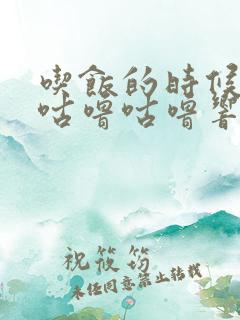 喫飯的時候
咕嚕咕嚕響
祝筱筠
未经同意禁止转载